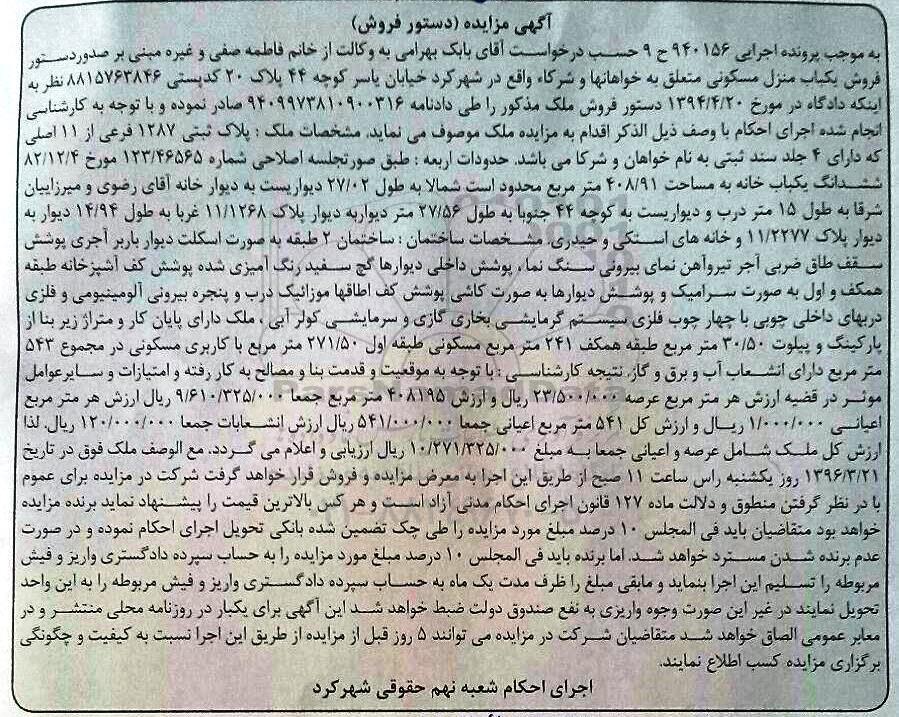 آگهی مزایده (دستور فروش)
به موجب پرونده اجرایی ۹۴۰۱۵۶ ح ۹ حسب درخواست آقای بابک بهرامی به وکالت از خانم فاطمه صفی و غیره مبنی بر صدوردستور
فروش یکباب منزل مسکونی متعلق به خواهانها و شرکاء واقع در شهرکرد خیابان یاسر کوچه ۴۴ پلاک ۲۰ کدپستی ۸۸۱۵۷۶۳۸۴۶ نظر به
اینکه دادگاه در مورخ ۱۳۹۴/۴/۲۰ دستور فروش ملک مذکور را طی دادنامه ۹۴۰۹۹۷۳۸۱۰۹۰۰۳۱۶ صادر نموده و با توجه به کارشناسی
انجام شده اجرای احکام با وصف ذیل الذکر اقدام به مزایده ملک موصوف می نماید. مشخصات ملک : پلاک ثبتی ۱۲۸۷ فرعی از ۱۱ اصلی
که دارای ۴ جلد سند ثبتی به نام خواهان و شرکا می باشد. حدودات اربعه : طبق صورتجلسه اصلاحی شماره ۱۲۳/۴۶۵۶۵ مورخ ۸۲/۱۲/۴
ششدانگ یکباب خانه به مساحت ۴۰۸/۹۱ متر مربع محدود است شمالا به طول ۲۷/۰۲ دیواریست به دیوار خانه آقای رضوی و میرزاییان
شرقا به طول ۱۵ متر درب و دیواریست به کوچه ۴۴ جنوبا به طول ۲۷/۵۶ متر دیواریه دیوار پلاک ۱۱/۱۲۶۸ غربا به طول ۱۴/۹۴ دیوار به
دیوار پلاک ۱۱/۲۲۷۷ و خانه های استکی و حیدری. مشخصات ساختمان : ساختمان ۲ طبقه به صورت اسکلت دیوار باربر آجری پوشش
سقف طاق ضربی آجر تیروآهن نمای بیرونی سنگ نما ، پوشش داخلی دیوارها گچ سفید رنگ آمیزی شده پوشش کف آشپزخانه طبقه
همکف و اول به صورت سرامیک و پوشش دیوارها به صورت کاشی پوشش کف اطاقها موزائیک درب و پنجره بیرونی آلومینیومی و فلزی
دربهای داخلی چوبی با چهار چوب فلزی سیستم گرمایشی بخاری گازی و سرمایشی کولر آبی ، ملک دارای پایان کار و متراژ زیر بنا از
پارکینگ و پیلوت ۳۰/۵۰ متر مربع طبقه همکف ۲۴۱ متر مربع مسکونی طبقه اول ۲۷۱/۵۰ متر مربع با کاربری مسکونی در مجموع ۵۴۳
متر مربع دارای انشعاب آب و برق و گاز. نتیجه کارشناسی : با توجه به موقعیت و قدمت بنا و مصالح به کار رفته و امتیازات و سایرعوامل
موثر در قضیه ارزش هر متر مربع عرصه ۲۳/۵۰۰/۰۰۰ ریال و ارزش ۴۰۸۱۹۵ متر مربع جمعا ۹/۶۱۰/۳۲۵/۰۰۰ ریال ارزش هر متر مربع
اعیانی ۱/۰۰۰/۰۰۰ ریال و ارزش کل ۵۴۱ متر مربع اعیانی جمعا ۵۴۱/۰۰۰/۰۰۰ ریال ارزش انشعابات جمعا ۱۲۰/۰۰۰/۰۰۰ ریال. لذا
ارزش کل ملک شامل عرصه و اعیانی جمعا به مبلغ ۱۰/۲۷۱/۳۲۵/۰۰۰ ریال ارزیابی و اعلام می گردد. مع الوصف ملک فوق در تاریخ
۱۳۹۶/۳/۲۱ روز یکشنبه راس ساعت ۱۱ صبح از طریق این اجرا به معرض مزایده و فروش قرار خواهد گرفت شرکت در مزایده برای عموم
با در نظر گرفتن منطوق و دلالت ماده ۱۲۷ قانون اجرای احکام مدنی آزاد است و هر کس بالاترین قیمت را پیشنهاد نماید برنده مزایده
خواهد بود متقاضیان باید فی المجلس ۱۰ درصد مبلغ مورد مزایده را طی چک تضمین شده بانکی تحویل اجرای احکام نموده و در صورت
عدم برنده شدن مسترد خواهد شد. اما برنده باید فی المجلس ۱۰ درصد مبلغ مورد مزایده را به حساب سپرده دادگستری واریز و فیش
مربوطه را تسلیم این اجرا بنماید و مابقی مبلغ را ظرف مدت یک ماه به حساب سپرده دادگستری واریز و فیش مربوطه را به این واحد
تحویل نمایند در غیر این صورت وجوه واریزی به نفع صندوق دولت ضبط خواهد شد این آگهی برای یکبار در روزنامه محلی منتشر و در
معابر عمومی الصاق خواهد شد متقاضیان شرکت در مزایده می توانند ۵ روز قبل از مزایده از طریق این اجرا نسبت به کیفیت و چگونگی
برگزاری مزایده کسب اطلاع نمایند.
اجرای احکام شعبه نهم حقوقی شهرکرد
ParsNamadData